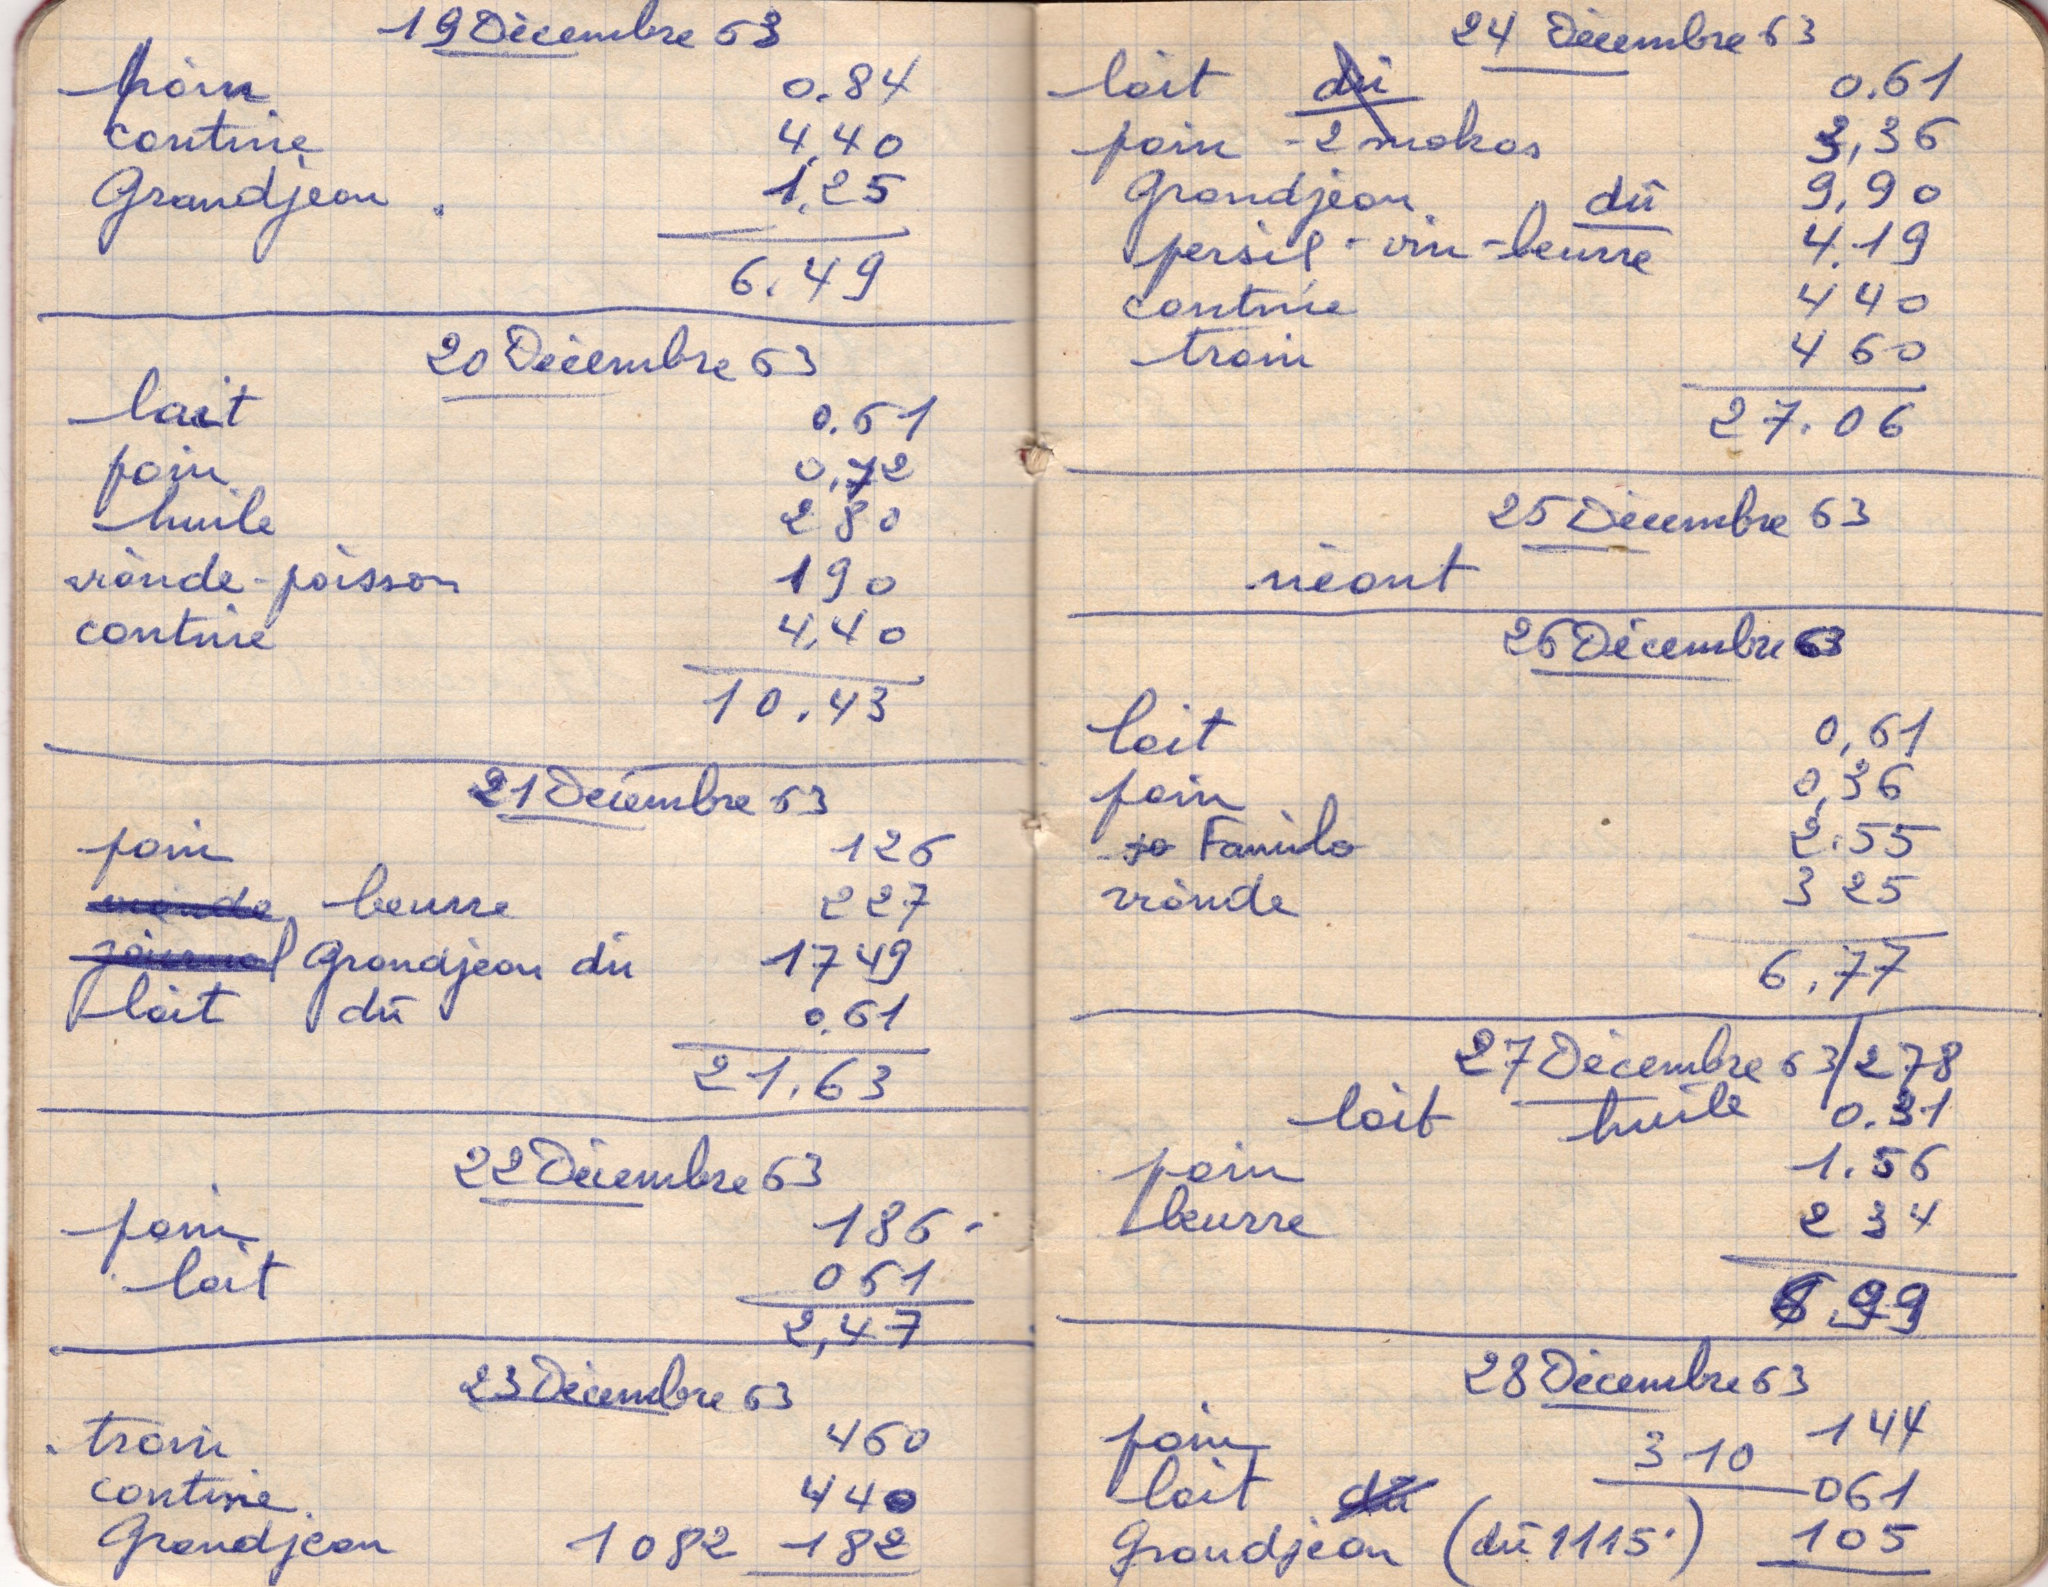 19 Décembre 63
pain 0.84
cantine 4,40
Grandjean. 1,25
6.49
20 Décembre 63
lait 0.61
pain 0,72
huile 2 80
viande - poisson 1 90
cantine 4,40
10.43
21 Décembre 63
pain 1 26
viande beurre 2 27
journal Grandjean dû 17 49
lait dû 0.61
21.63
22 Décembre 63
pain 1 86 -
lait 0 61
2,47
23 Décembre 63
train 4 60
cantine 4 40
Grandjean 10 82 1 82
24 Décembre 63
lait dû 0.61
pain - 2 mokas 3,36
Grandjean dû 9,90
persil - vin - beurre 4.19
cantine 4 40
train 4 60
27.06
25 Décembre 63
néant
26 Décembre 63
lait 0,61
pain 0,36
Familo 2.55
viande 3 25
6.77
27 Décembre 63 / 2 78
lait huile 0.31
pain 1.56
beurre 2 34
6.99
28 Décembre 63
pain 3 10 1 44
lait dû 0 61
Grandjean (dû 11 15) 1 05